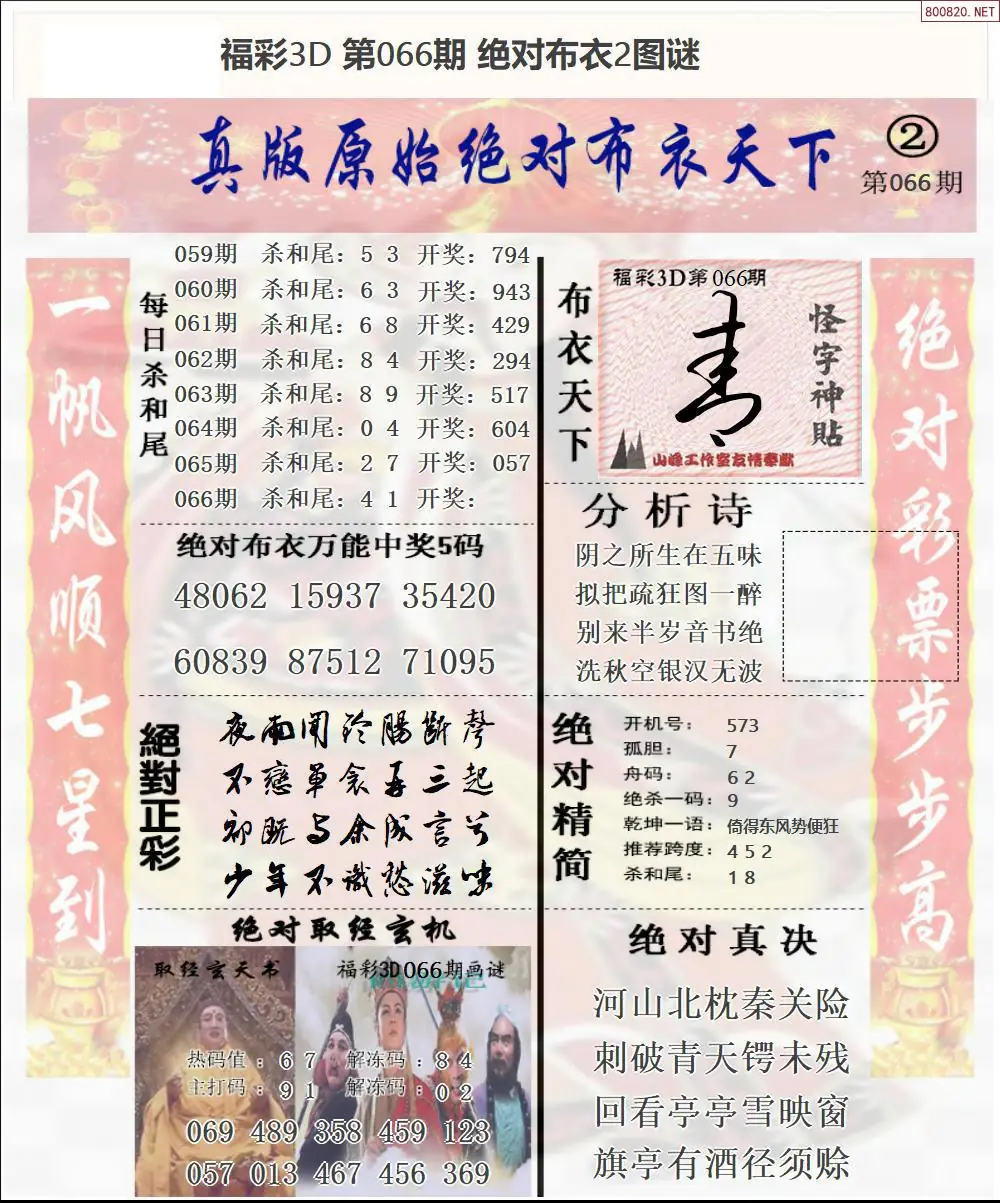 800820.NET
福彩3D 第066期 绝对布衣2图谜
真版原始绝对布衣天下
②
第066期
一帆风顺七星到
每日杀和尾
059期 杀和尾：5 3 开奖：794
060期 杀和尾：6 3 开奖：943
061期 杀和尾：6 8 开奖：429
062期 杀和尾：8 4 开奖：294
063期 杀和尾：8 9 开奖：517
064期 杀和尾：0 4 开奖：604
065期 杀和尾：2 7 开奖：057
066期 杀和尾：4 1 开奖：
绝对布衣万能中奖5码
48062 15937 35420
60839 87512 71095
絕對正彩
夜雨闻铃腸断聲
不戀單衾再三起
初既与余成言兮
少年不識愁滋味
绝对取经玄机
取经玄天书
福彩3D066期画谜
热码值：6 7 解冻码：8 4
主打码：9 1 解冻码：0 2
069 489 358 459 123
057 013 467 456 369
布衣天下
福彩3D第066期
怪字神貼
山峰工作室友情奉献
分析诗
阴之所生在五味
拟把疏狂图一醉
别来半岁音书绝
洗秋空银汉无波
绝对精简
开机号： 573
孤胆： 7
舟码： 6 2
绝杀一码：9
乾坤一语：倚得东风势便狂
推荐跨度：4 5 2
杀和尾： 1 8
绝对真决
河山北枕秦关险
刺破青天锷未残
回看亭亭雪映窗
旗亭有酒径须赊
绝对彩票步步高